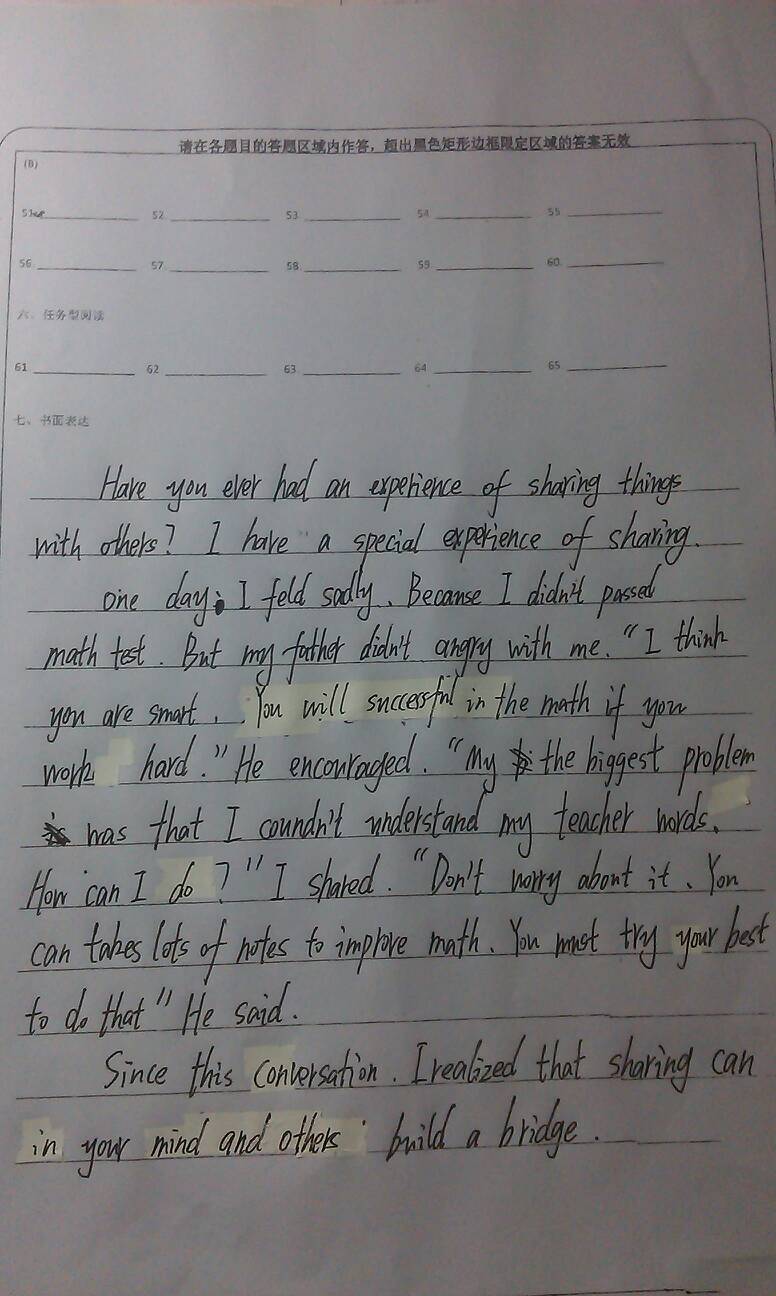 请在各题目的答题区域内作答，超出黑色矩形边框限定区域的答案无效
(B)
51 52 53 54 55
56 57 58 59 60
六、任务型阅读
61 62 63 64 65
七、书面表达
Have you ever had an experience of sharing things
with others? I have a special experience of sharing.
One day, I feld sadly. Because I didn't passed
math test. But my father didn't angry with me. "I think
you are smart. You will successful in the math if you
work hard." He encouraged. "My the biggest problem
was that I coundn't understand my teacher words.
How can I do?" I shared. "Don't worry about it. You
can takes lots of notes to improve math. You must try your best
to do that" He said.
Since this conversation. I realized that sharing can
in your mind and others' build a bridge.